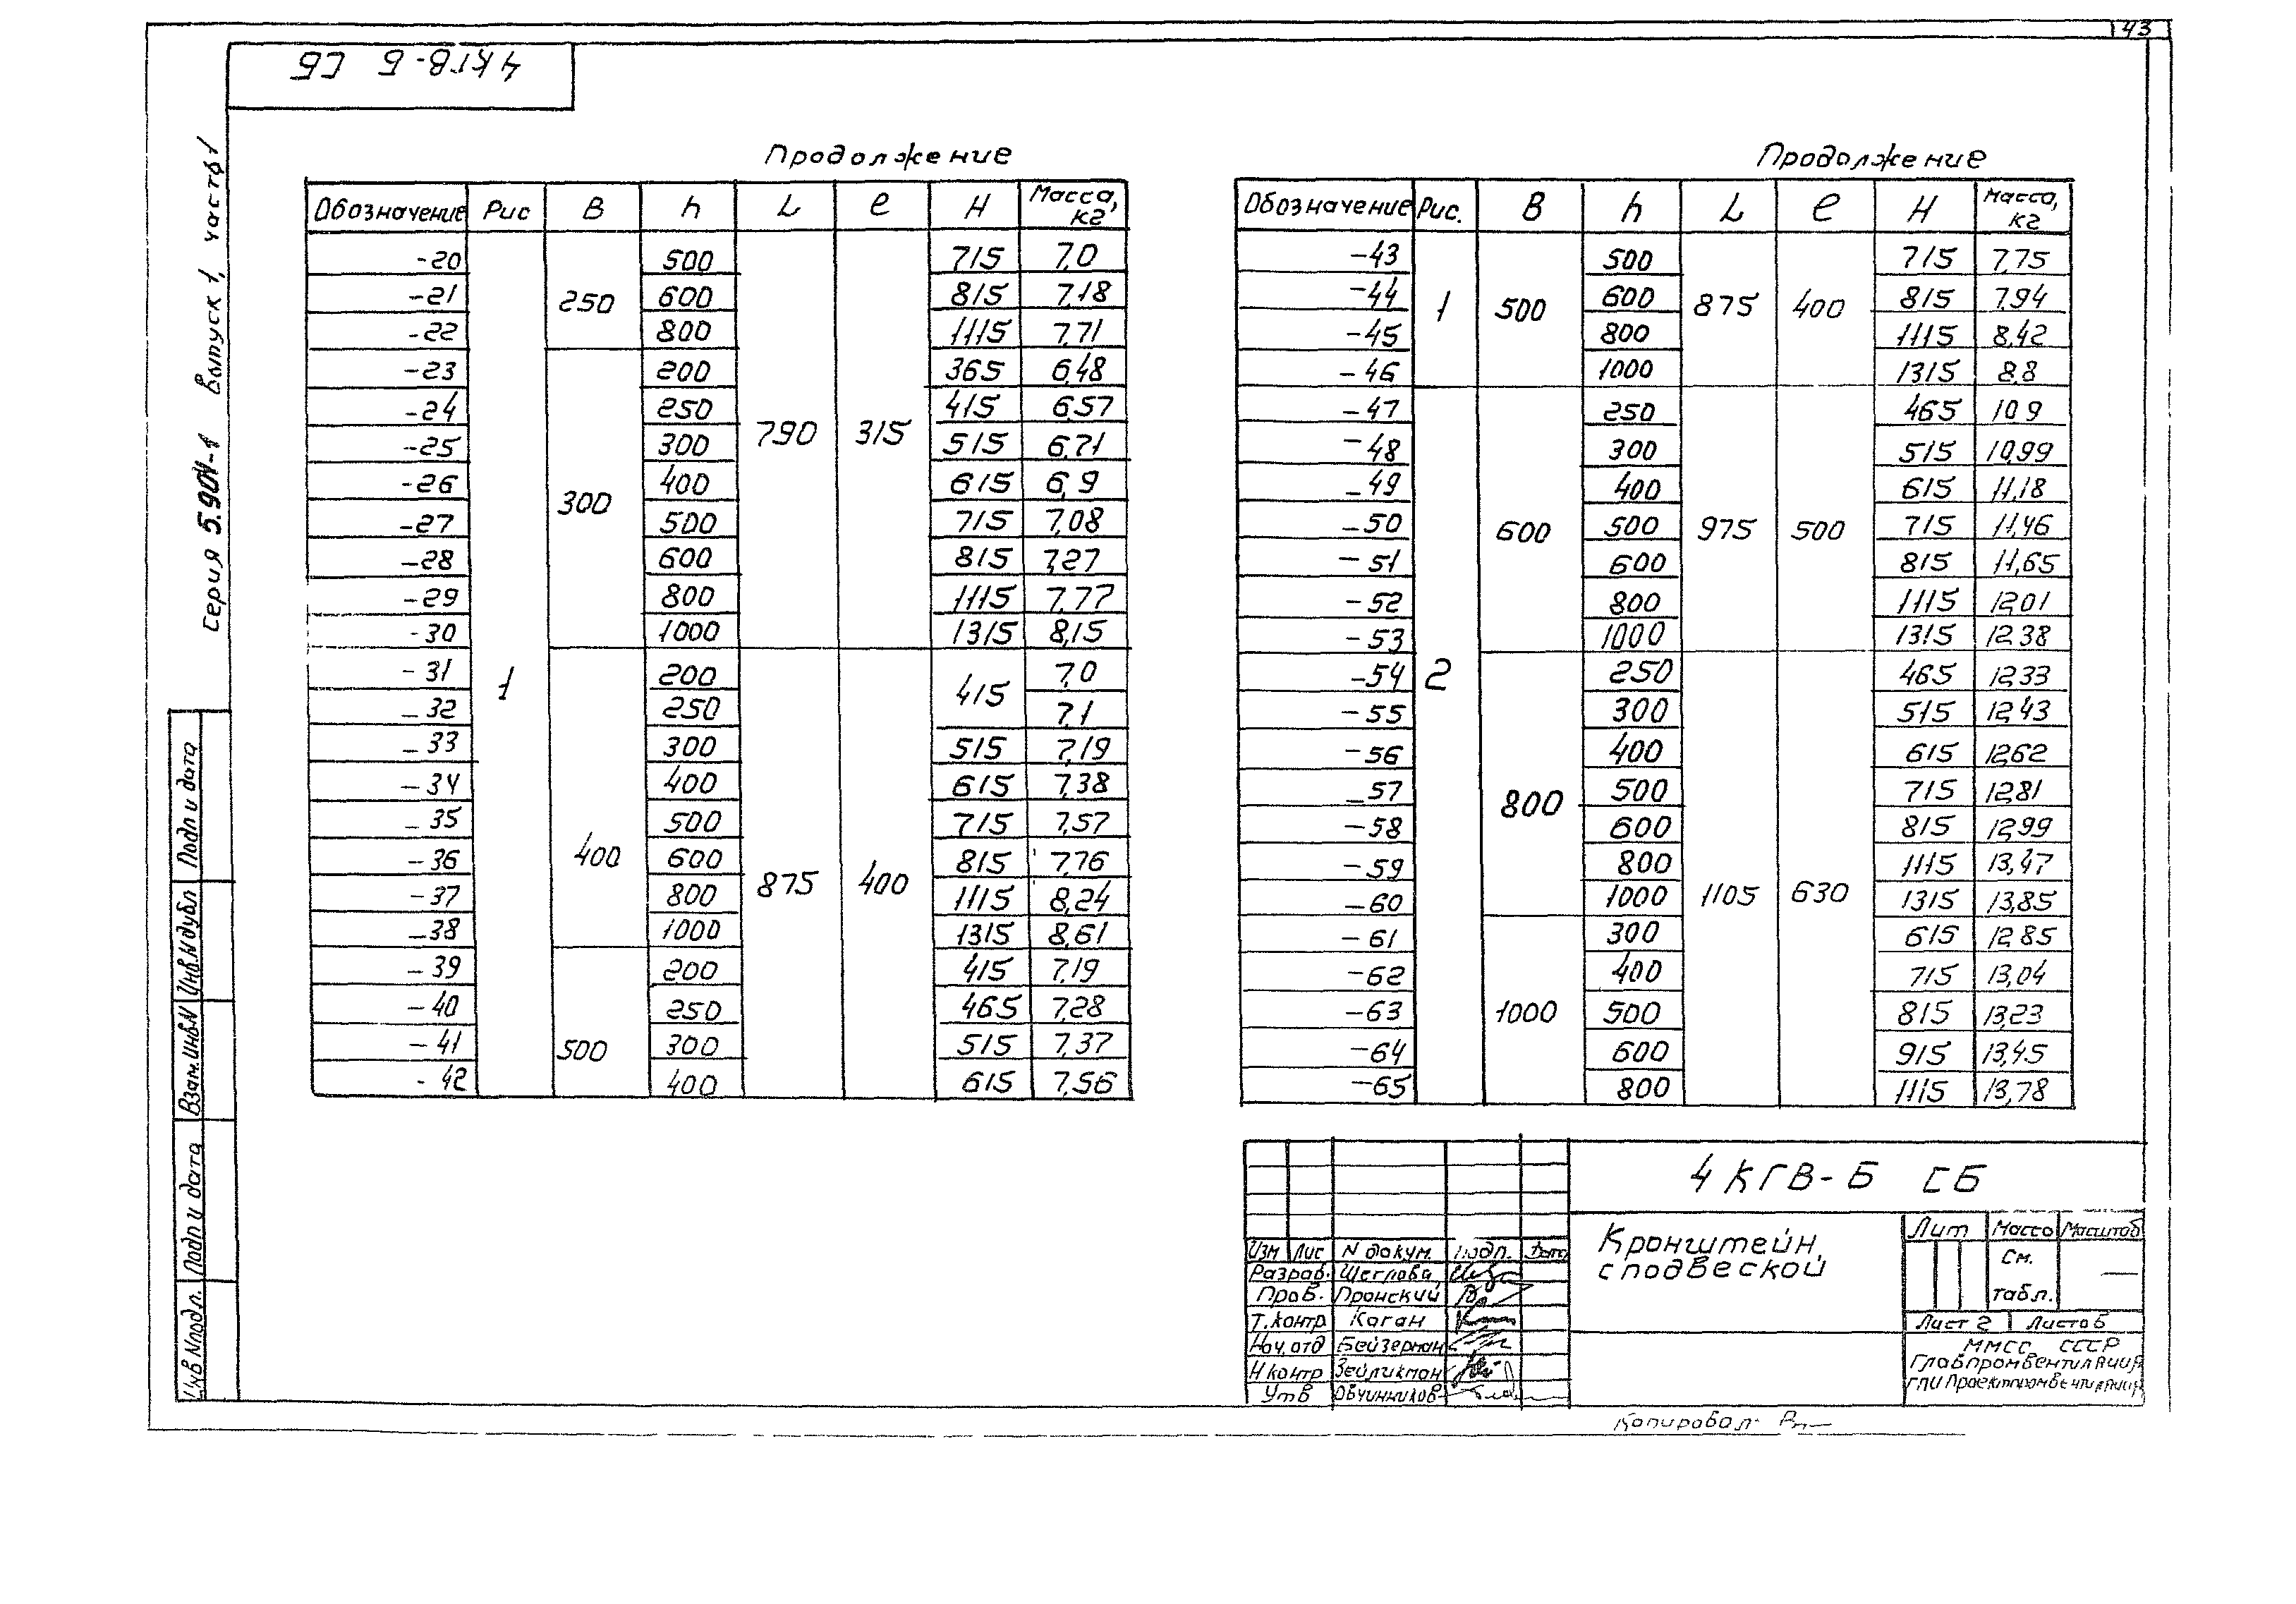 43
4КГВ-Б СБ
Серия 5.904-1 Выпуск 1, часть 1
Продолжение
Обозначение Рис В h L e H Масса, кг
-20 1 250 500 790 315 715 7,0
-21 600 815 7,18
-22 800 1115 7,71
-23 300 200 365 6,48
-24 250 415 6,57
-25 300 515 6,71
-26 400 615 6,9
-27 500 715 7,08
-28 600 815 7,27
-29 800 1115 7,77
-30 1000 1315 8,15
-31 400 200 875 400 415 7,0
-32 250 7,1
-33 300 515 7,19
-34 400 615 7,38
-35 500 715 7,57
-36 600 815 7,76
-37 800 1115 8,24
-38 1000 1315 8,61
-39 500 200 415 7,19
-40 250 465 7,28
-41 300 515 7,37
-42 400 615 7,56
Продолжение
Обозначение Рис. В h L e H Масса, кг
-43 1 500 500 875 400 715 7,75
-44 600 815 7,94
-45 800 1115 8,42
-46 1000 1315 8,8
-47 2 600 250 975 500 465 10,9
-48 300 515 10,99
-49 400 615 11,18
-50 500 715 11,46
-51 600 815 11,65
-52 800 1115 12,01
-53 1000 1315 12,38
-54 800 250 1105 630 465 12,33
-55 300 515 12,43
-56 400 615 12,62
-57 500 715 12,81
-58 600 815 12,99
-59 800 1115 13,47
-60 1000 1315 13,85
-61 1000 300 615 12,85
-62 400 715 13,04
-63 500 815 13,23
-64 600 915 13,45
-65 800 1115 13,78
Подп и дата
Инв.N дубл
Взам.инв.N
Подп и дата
Инв N подл.
4КГВ-Б СБ
Кронштейн,
с подвеской
Лит Масса Масштаб
См.
табл.
—
Лист 2 Листов
ММСС СССР
Главпромвентиляция
ГПИ Проектпромвентиляция
Изм Лис N докум. Подп. Дата
Разраб. Щеглова
Проб. Пронский
Т.контр Каган
Нач.отд Бейзерман
Н контр Зейликман
Утв Овчинников
Копировал: